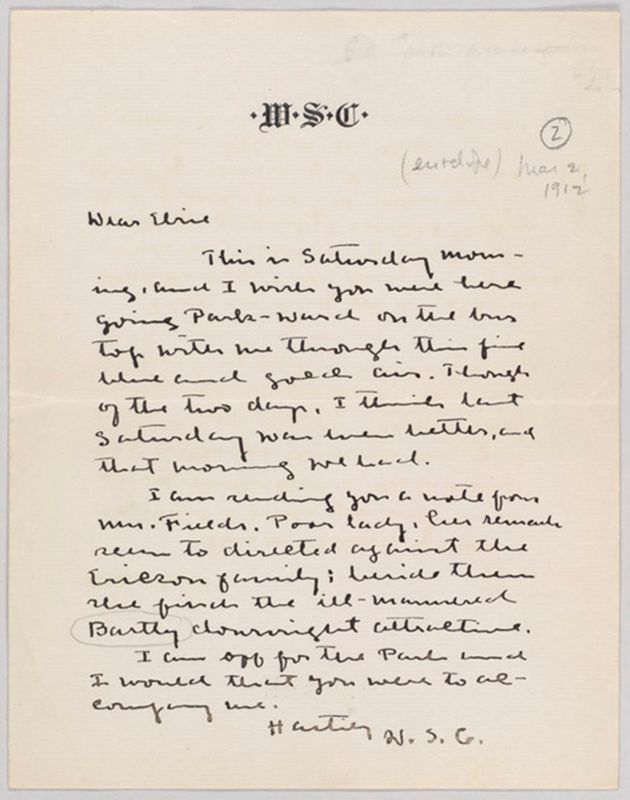 ·W·S·C·
2
(envelope) Mar 2,
1912
Dear Elsie
This is Saturday morn-
ing, and I wish you were here
going Park-ward on the bus
top with me through this fine
blue and gold air. Though
of the two days, I think last
Saturday was even better, and
that morning we had.
I am sending you a note from
Mrs. Fields. Poor lady, her remarks
seem to directed against the
Ericson family; beside them
she finds the ill-mannered
Bartley downright attractive.
I am off for the Park and
I would that you were to ac-
company me.
Hastily W. S. C.